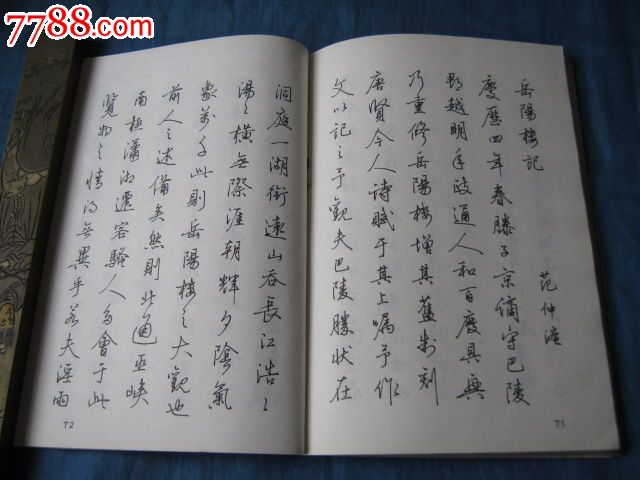 7788.com
岳陽樓記
范仲淹
慶歷四年春滕子京謫守巴陵
郡越明年政通人和百廢具興
乃重修岳陽樓增其舊制刻
唐賢今人詩賦于其上囑予作
文以記之予觀夫巴陵勝狀在
71
洞庭一湖銜遠山吞長江浩浩
湯湯橫無際涯朝輝夕陰氣
象萬千此則岳陽樓之大觀也
前人之述備矣然則北通巫峽
南極瀟湘遷客騷人多會于此
覽物之情得無異乎若夫淫雨
72